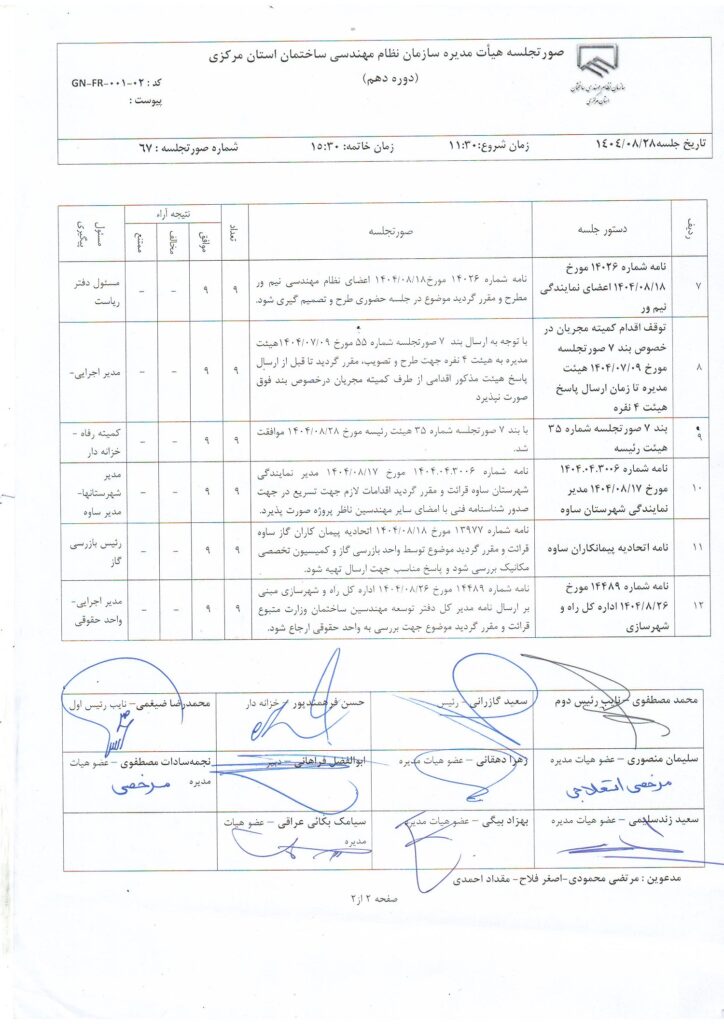 صورتجلسه هیأت مدیره سازمان نظام مهندسی ساختمان استان مرکزی
(دوره دهم)
کد : GN-FR-۰۰۱-۰۲
پیوست :
سازمان نظام مهندسی ساختمان
استان مرکزی
تاریخ جلسه۱۴۰۴/۰۸/۲۸ زمان شروع:۱۱:۳۰ زمان خاتمه: ۱۵:۳۰ شماره صورتجلسه : ۶۷
ردیف دستور جلسه صورتجلسه تعداد نتیجه آراء مسئول پیگیری
موافق مخالف ممتنع
۷
نامه شماره ۱۴۰۲۶ مورخ
۱۴۰۴/۰۸/۱۸ اعضای نمایندگی
نیم ور
نامه شماره ۱۴۰۲۶ مورخ۱۴۰۴/۰۸/۱۸ اعضای نظام مهندسی نیم ور
مطرح و مقرر گردید موضوع در جلسه حضوری طرح و تصمیم گیری شود.
۹ ۹ – –
مسئول دفتر
ریاست
۸
توقف اقدام کمیته مجریان در
خصوص بند ۷ صورتجلسه
مورخ ۱۴۰۴/۰۷/۰۹ هیئت
مدیره تا زمان ارسال پاسخ
هیئت ۴ نفره
با توجه به ارسال بند ۷ صورتجلسه شماره ۵۵ مورخ ۱۴۰۴/۰۷/۰۹هیئت
مدیره به هیئت ۴ نفره جهت طرح و تصویب، مقرر گردید تا قبل از ارسال
پاسخ هیئت مذکور اقدامی از طرف کمیته مجریان درخصوص بند فوق
صورت نپذیرد
۹ ۹ – –
مدیر اجرایی-
۹
بند ۷ صورتجلسه شماره ۳۵
هیئت رئیسه
با بند ۷ صورتجلسه شماره ۳۵ هیئت رئیسه مورخ ۱۴۰۴/۰۸/۲۸ موافقت
شد.
۹ ۹ – –
کمیته رفاه -
خزانه دار
۱۰
نامه شماره ۱۴۰۴.۰۴.۳۰۰۶
مورخ ۱۴۰۴/۰۸/۱۷ مدیر
نمایندگی شهرستان ساوه
نامه شماره ۱۴۰۴.۰۴.۳۰۰۶ مورخ ۱۴۰۴/۰۸/۱۷ مدیر نمایندگی
شهرستان ساوه قرائت و مقرر گردید اقدامات لازم جهت تسریع در جهت
صدور شناسنامه فنی با امضای سایر مهندسین ناظر پروژه صورت پذیرد.
۹ ۹ – –
مدیر
شهرستانها-
مدیر ساوه
۱۱
نامه اتحادیه پیمانکاران ساوه
نامه شماره ۱۳۹۷۷ مورخ ۱۴۰۴/۰۸/۱۸ اتحادیه پیمان کاران گاز ساوه
قرائت و مقرر گردید موضوع توسط واحد بازرسی گاز و کمیسیون تخصصی
مکانیک بررسی شود و پاسخ مناسب جهت ارسال تهیه شود.
۹ ۹ – –
رئیس بازرسی
گاز
۱۲
نامه شماره ۱۴۴۸۹ مورخ
۱۴۰۴/۸/۲۶ اداره کل راه و
شهرسازی
نامه شماره ۱۴۴۸۹ مورخ ۱۴۰۴/۰۸/۲۶ اداره کل راه و شهرسازی مبنی
بر ارسال نامه مدیر کل دفتر توسعه مهندسین ساختمان وزارت متبوع
قرائت و مقرر گردید موضوع جهت بررسی به واحد حقوقی ارجاع شود.
۹ ۹ – –
مدیر اجرایی-
واحد حقوقی
محمد مصطفوی – نایب رئیس دوم
سعید گازرانی – رئیس
حسن فرهمندپور – خزانه دار
محمدرضا ضیغمی – نایب رئیس اول
سلیمان منصوری – عضو هیات مدیره
مرخصی استعلاجی
زهرا دهقانی – عضو هیات مدیره
ابوالفضل فراهانی – دبیر
نجمه‌سادات مصطفوی – عضو هیات
مدیره
مرخصی
سعید زندسلیمی – عضو هیات مدیره
بهزاد بیگی – عضو هیات مدیره
سیامک بکائی عراقی – عضو هیات
مدیره
مدعوین : مرتضی محمودی-اصغر فلاح- مقداد احمدی
صفحه ۲ از۲